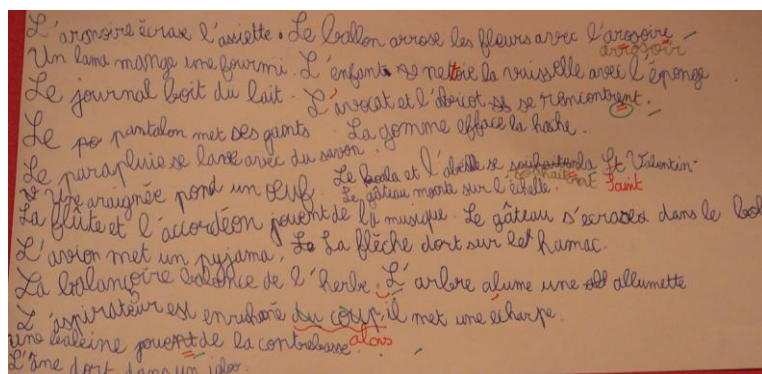 L'armoire écrase l'assiette. Le ballon arrose les fleurs avec l'arosoire
arrosoir
Un lama mange une fourmi. L'enfant se nettoie la vaisselle avec l'éponge
Le journal boit du lait. L'avocat et l'abricot se rencontrent.
Le pantalon met ses gants La gomme efface la hache.
Le parapluie se lave avec du savon. Le koala et l'abeille se la St Valentin.
souhaitent Saint
Une araignée pond un œuf. Le gâteau monte sur l'échelle.
La flûte et l'accordéon jouent de la musique. Le gâteau s'ecrase dans le bol
L'avion met un pyjama. La flèche dort sur le hamac.
La balançoire balance de l'herbe. L'arbre alume une allumette
L'aspirateur est enrhumé du coup il met une écharpe.
alors
une baleine jouent de la contrebasse.
L'âne dort dans un igloo.